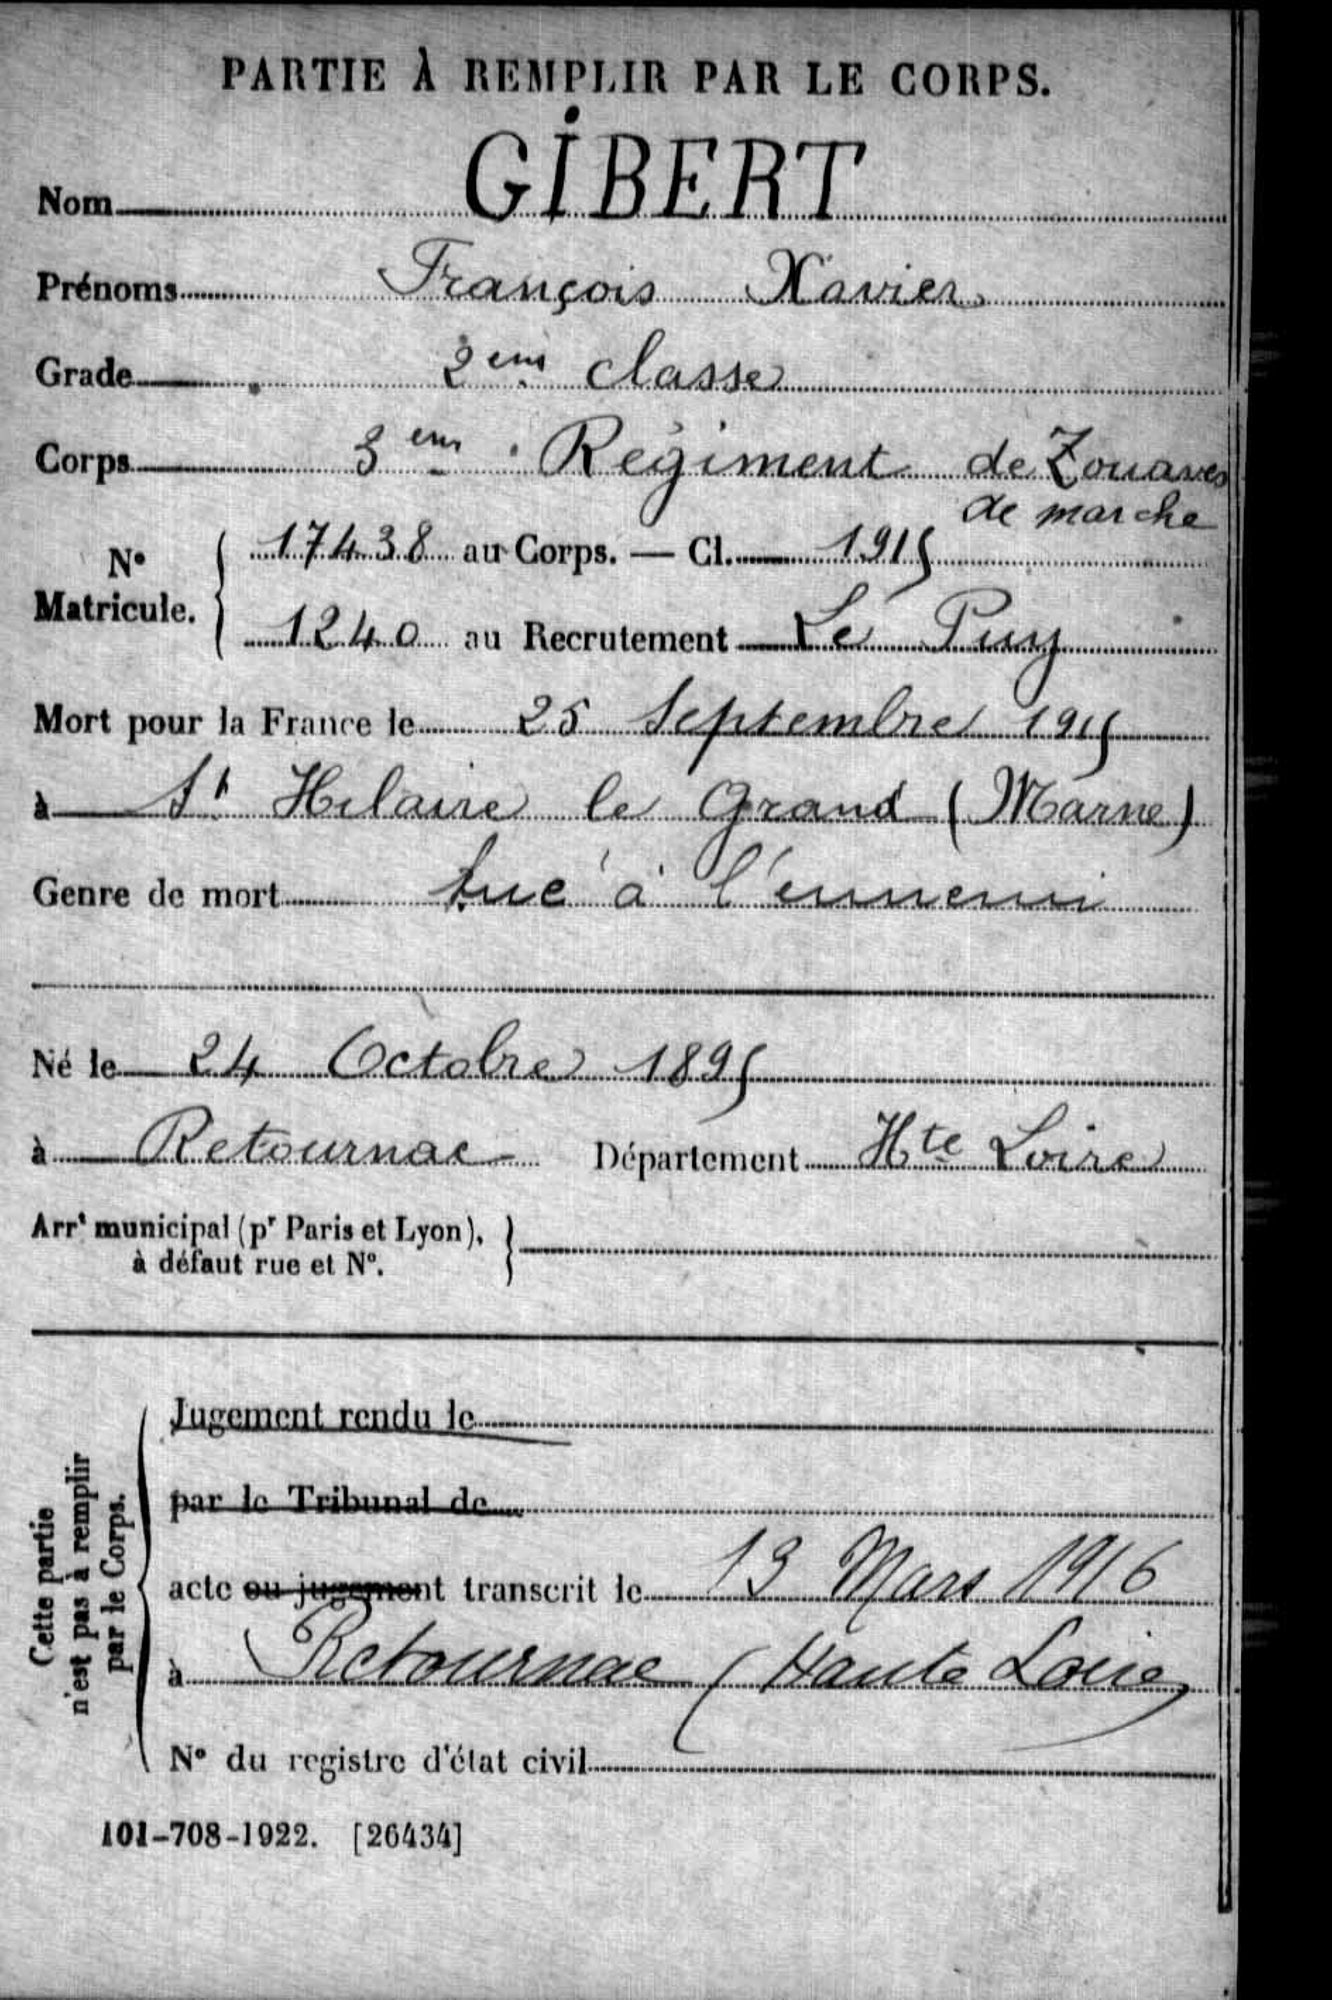 PARTIE À REMPLIR PAR LE CORPS.
Nom GIBERT
Prénoms François Xavier
Grade 2eme classe
Corps 3eme Régiment de Zouaves
de marche
N° Matricule. 17438 au Corps. — Cl. 1915
1240 au Recrutement Le Puy
Mort pour la France le 25 Septembre 1915
à St Hilaire le Grand (Marne)
Genre de mort tué à l'ennemi
Né le 24 Octobre 1895
à Retournac Département Hte Loire
Arrt municipal (pr Paris et Lyon),
à défaut rue et N°.
Cette partie
n'est pas à remplir
par le Corps.
Jugement rendu le
par le Tribunal de
acte ou jugement transcrit le 13 Mars 1916
à Retournac (Haute Loire)
N° du registre d'état civil
101-708-1922. [26434]